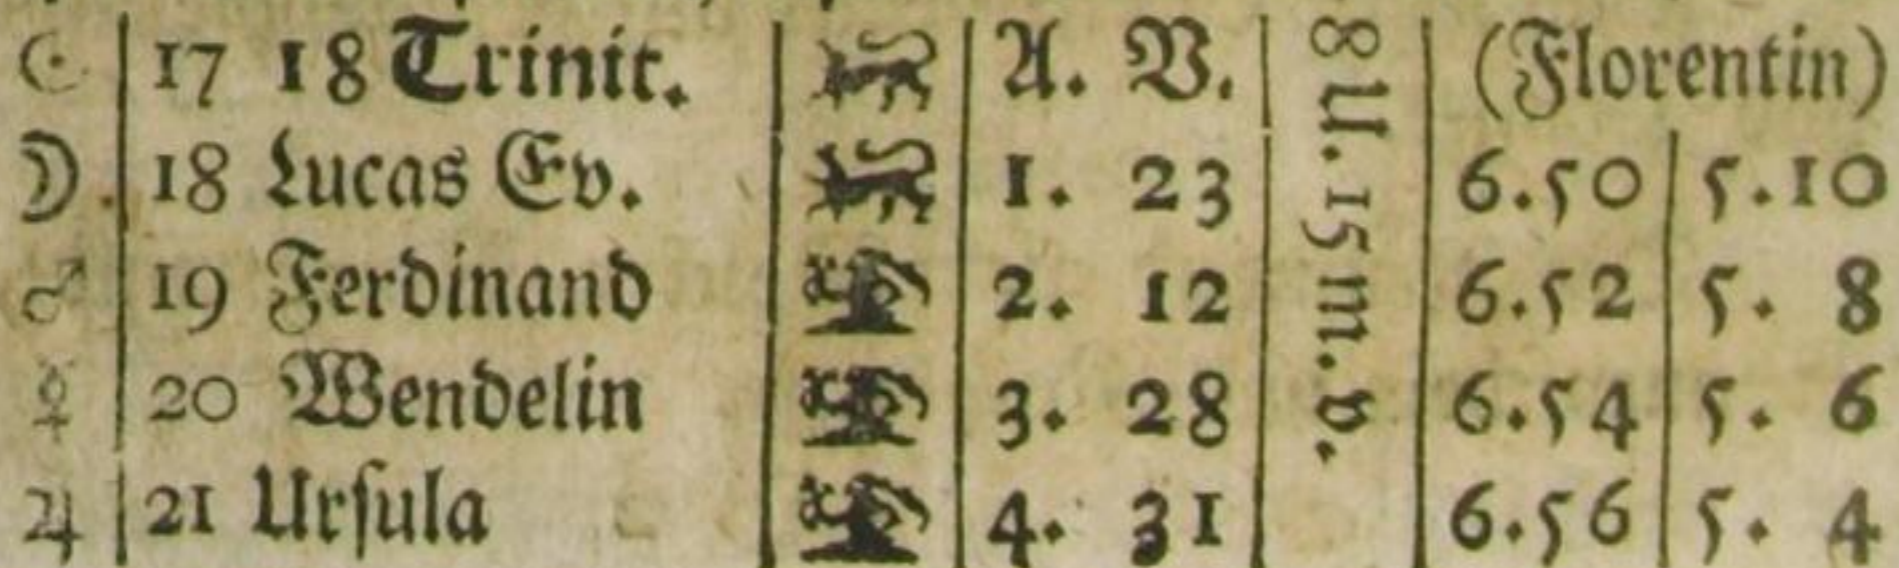 ☉ 17 18 Trinit. A. V. (Florentin)
☽. 18 Lucas Ev. 1. 23 6.50 5.10
♂ 19 Ferdinand 2. 12 6.52 5. 8
☿ 20 Wendelin 3. 28 6.54 5. 6
♃ 21 Urſula 4. 31 6.56 5. 4
8 U. 15 m. v.